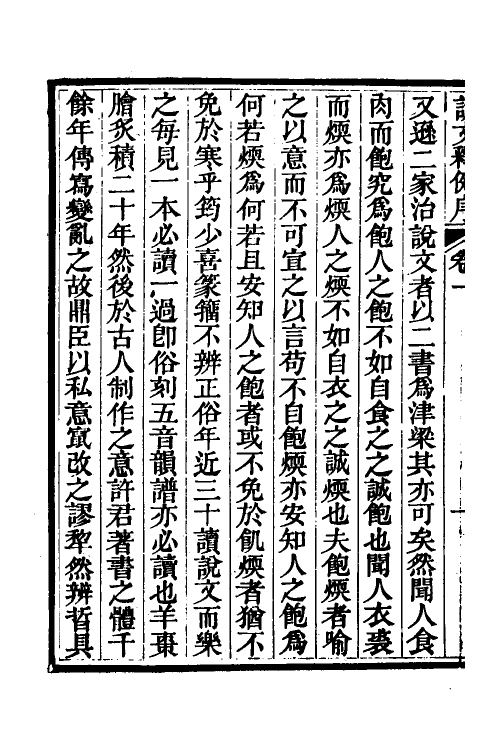 說文釋例序 卷一
又遜二家治說文者以二書爲津梁其亦可矣然聞人食
肉而飽究爲飽人之飽不如自食之之誠飽也聞人衣裘
而煗亦爲煗人之煗不如自衣之之誠煗也夫飽煗者喻
之以意而不可宣之以言苟不自飽煗亦安知人之飽爲
何若煗爲何若且安知人之飽者或不免於飢煗者猶不
免於寒乎筠少喜篆籀不辨正俗年近三十讀說文而樂
之每見一本必讀一過卽俗刻五音韻譜亦必讀也羊棗
膾炙積二十年然後於古人制作之意許君著書之體千
餘年傳寫變亂之故鼎臣以私意竄改之謬犂然辨晢具